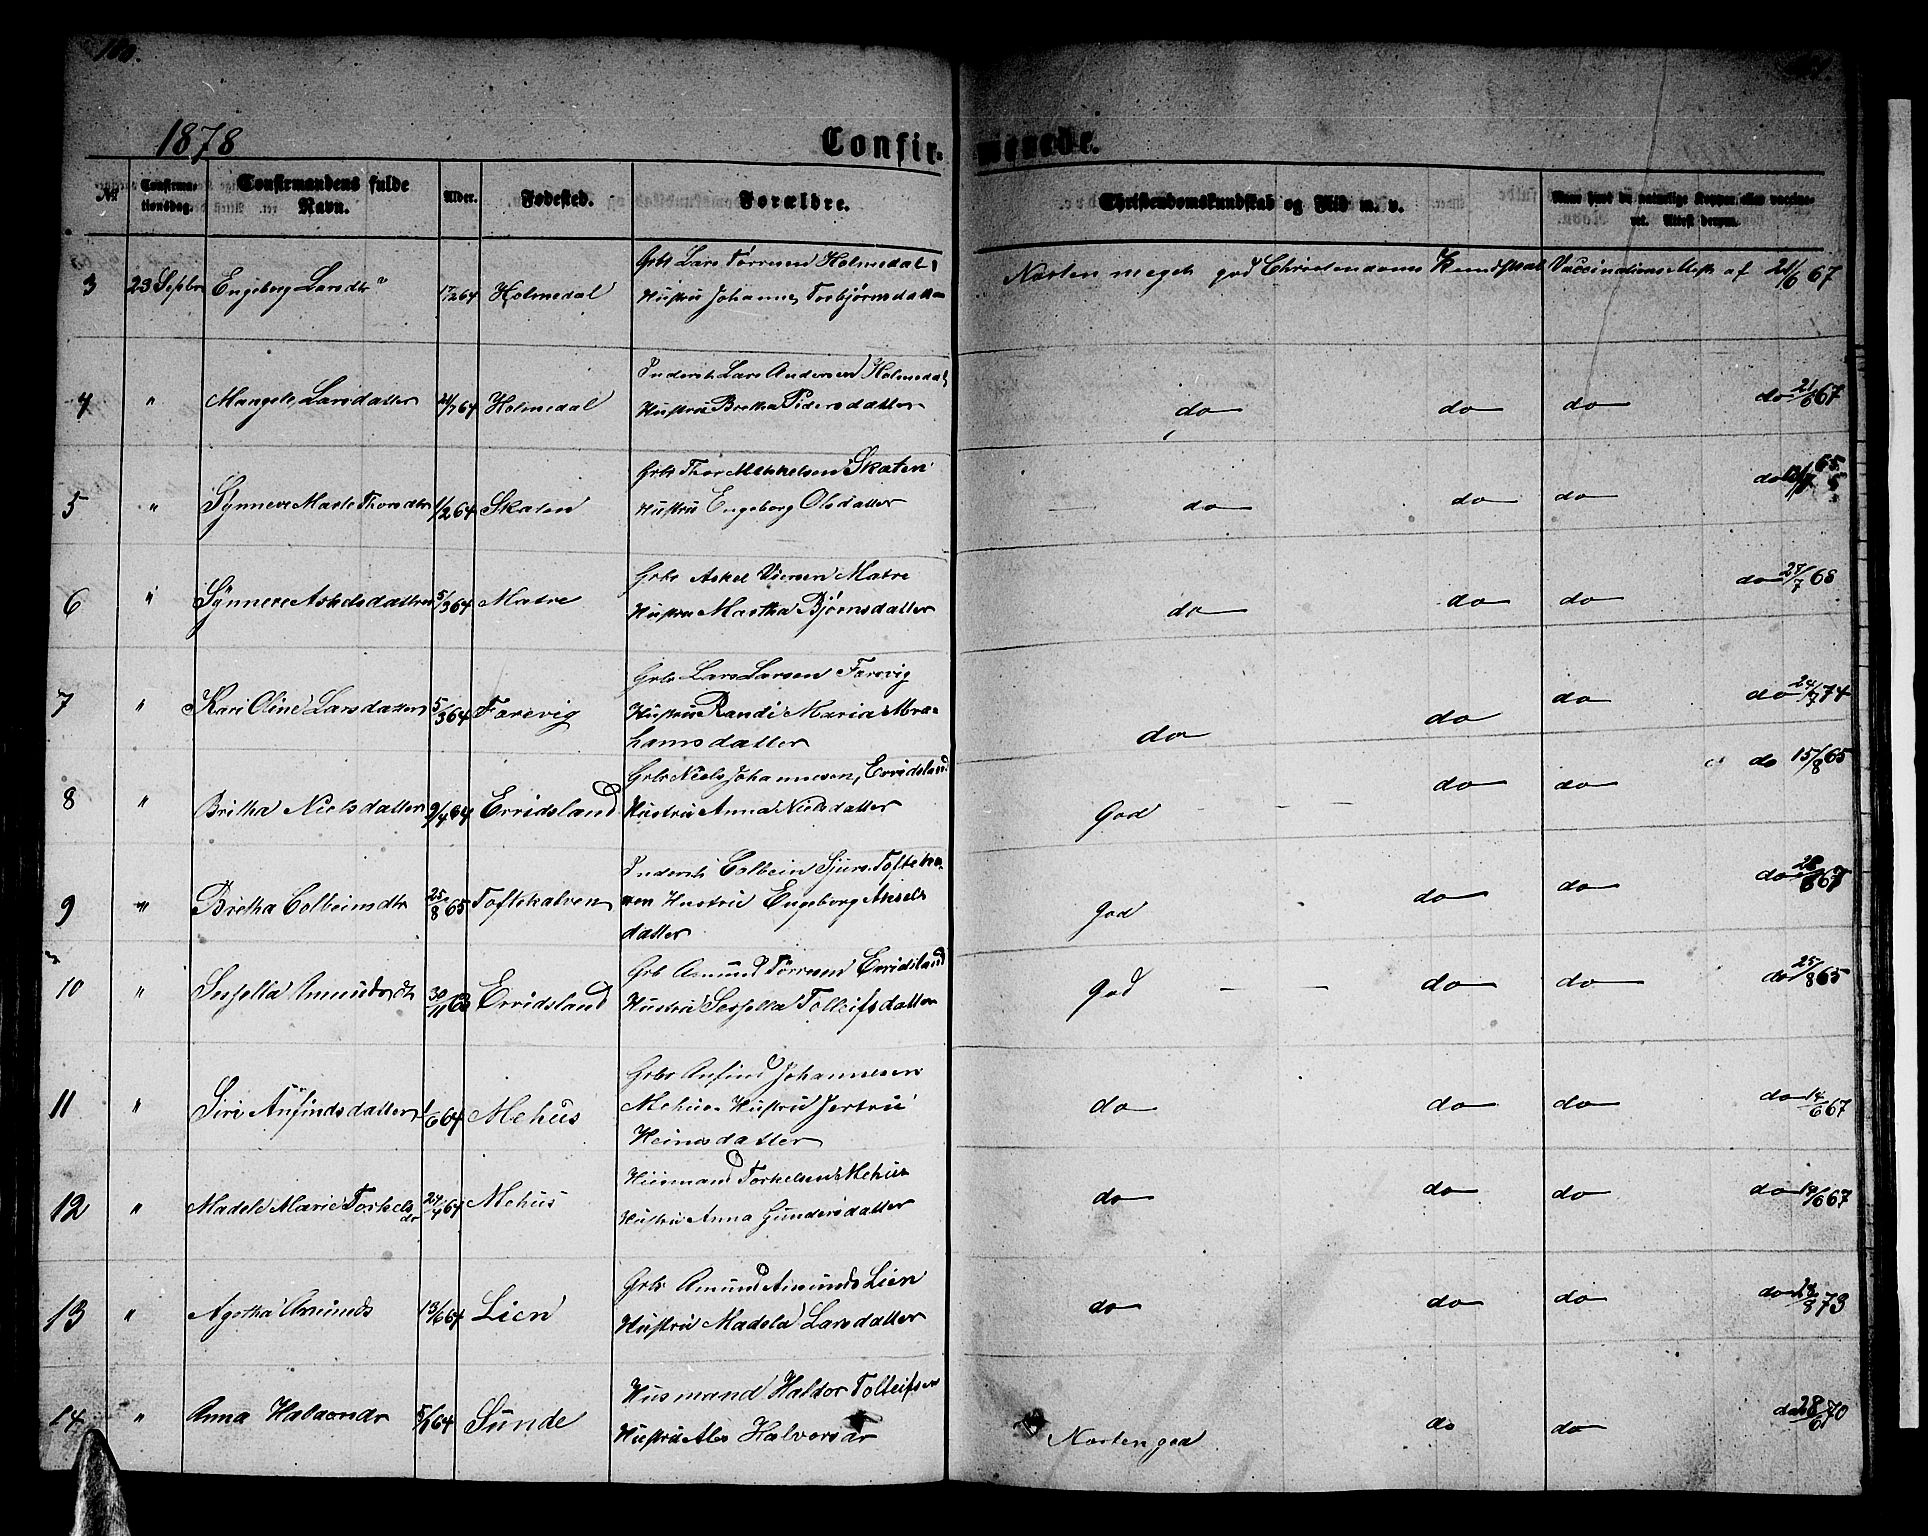 180.
1878
Confir-
merede.
No
Confirma-
tionsdag.
Confirmandens fulde
Navn.
Alder.
Fødested.
Forældre.
Christendomskundskab og Flid m. v.
3 23 Septbr Engeborg Larsdtr 17/2 64 Holmedal
Grbr Lars Tørresen Holmedal,
Hustru Johanne Torbjørnsdatter
Næsten meget god Christendoms Kundskab Vaccinations Attest af 21/6 67
4 " Mangele Larsdatter 21/7 64 Holmedal
Inderst Lars Andersen Holmedal,
Hustru Bretha Pedersdatter
do do do do 21/6 67
5 " Synneve Marte Thorsdtr 1/2 64 Skaten
Grbr Thor Mikkelsen Skaten
Hustru Engeborg Olsdatter
do do do do
6 " Synneve Askelsdatter 5/3 64 Matre
Grbr Askel Matre
Hustru Martha Bjørnsdatter
do do do do 27/7 68
7 " Kari Oline Larsdatter 5/3 64 Farevig
Grbr Lars Larsen Farevig
Hustru Randi Maria Abra-
hamsdatter
do do do do 24/7 74
8 " Britha Nielsdatter 9/4 64 Erridsland
Grbr Niels Johannesen, Erridsland
Hustru Anna Nielsdatter
God - - do do do 15/8 65
9 " Bretha Colbeinsdtr 25/8 65 Toftekalven
Inderst Colbein Sjurs. Toftekal-
ven Hustru Engeborg Aksels
datter
God do do do 28/8 67
10 " Sesselia Amundsdtr 30/11 63 Erridsland
Grb Asmund Tørresen Erridsland
Hustru Sesselia Tolleifsdatter
God - - do do do 25/8 65
11 " Siri Anfindsdatter 1/6 64 Mehus
Grbr Anfind Johannesen
Mehus Hustru Jertru
Heinesdatter
do do do do 14/6 67
12 " Madele Marie Torkels
dr 24/4 64 Mehus
Husmand Torkelsen Mehus
Hustru Anna Gundersdatter
do do do do 19/6 67
13 " Agotha Amunds 13/6 64 Lien
Grbr Amund Amunds Lien
Hustru Madela Larsdatter
do do do do 8 73
14 " Anna Haldorsdr 5/7 64 Sunde
Husmand Haldor Tolleifsen
Hustru Halvorsdr
Næsten god do do do 28/6 70